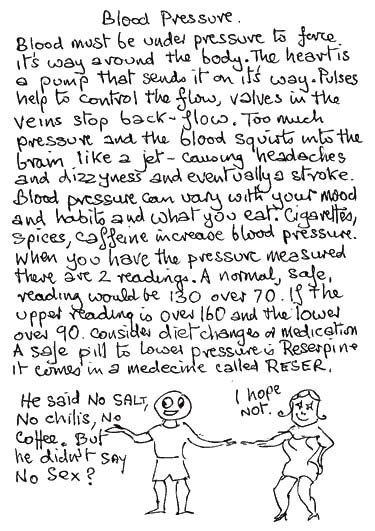 Blood Pressure.
Blood must be under pressure to force
it's way around the body. The heart is
a pump that sends it on it's way. Pulses
help to control the flow, valves in the
veins stop back-flow. Too much
pressure and the blood squirts into the
brain like a jet - causing headaches
and dizzyness and eventually a stroke.
Blood pressure can vary with your mood
and habits and what you eat. Cigarettes,
spices, caffeine increase blood pressure.
When you have the pressure measured
there are 2 readings. A normal, safe,
reading would be 130 over 70. If the
upper reading is over 160 and the lower
over 90. consider diet changes or medication
A safe pill to lower pressure is Reserpine
it comes in a medecine called RESER.
He said No SALT,
No chilis, No
Coffee. But
he didn't SAY
No Sex?
I hope
Not.